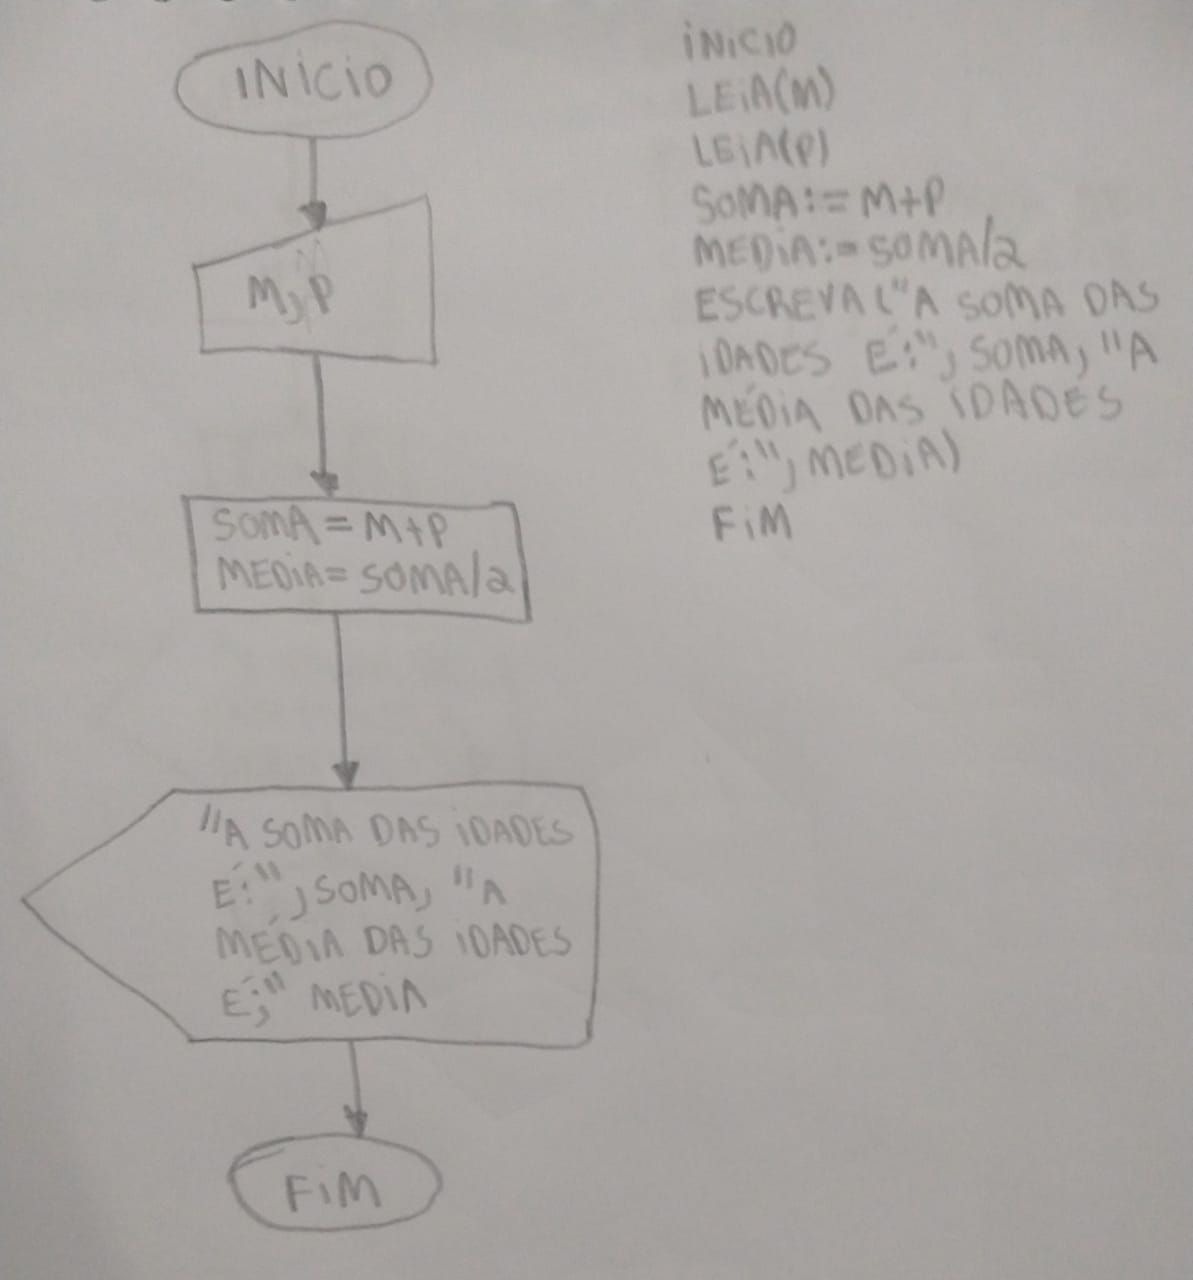 INICIO
M, P
SOMA = M+P
MEDIA= SOMA/2
"A SOMA DAS IDADES
É:", SOMA, "A
MÉDIA DAS IDADES
É;" MEDIA
FIM
INICIO
LEIA(M)
LEIA(P)
SOMA:=M+P
MEDIA:=SOMA/2
ESCREVA("A SOMA DAS
IDADES E:", SOMA, "A
MÉDIA DAS IDADES
É:", MEDIA)
FIM